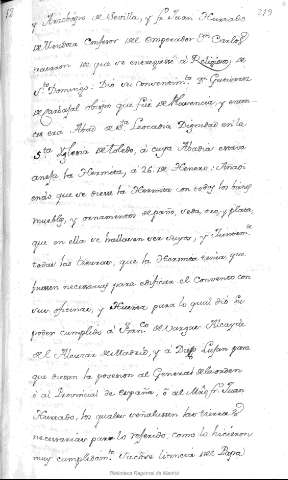 12 219
y Arzobispo de Sevilla, y fr. Juan Hurtado
de Mendoza Confesor del Emperador Carlos
que se entregase à Religiosos de
Sto. Domingo. Dio su consentimto. Dn. Gutierrez
de Carbajal obispo que fué de Plasencia, y enton-
ces era Abad de Sta. Leocadia Dignidad en la
Sta. Yglesia de Toledo, á cuya Abadia estaba
anexa la Hermita, á 26. de Henero: Añadi-
endo que se diese la Hermita con todos los bienes
muebles, y ornamentos de paño, seda, oro, y plata,
que en ella se hallasen ser suyos, y juntamte.
todas las tierras, que la Hermita tenia que
fuesen necesarias para edificar el Convento con
sus oficinas, y Huerta para lo qual dió su
poder cumplido à Franco. de Vargas Alcayde
del Alcazar de Madrid, y á Dn. Lujan para
que diesen la posesion al General de la orden
ó al Provincial de España, ó al Mro. fr. Juan
Hurtado, los quales señalasen las tierras
necesarias para lo referido, como lo hicieron
muy cumplidamte. Sacose licencia del Papa
Biblioteca Regional de Madrid